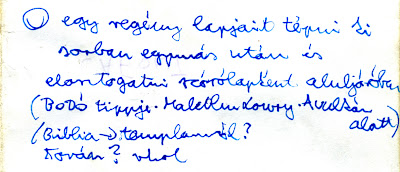 egy regény lapjait tépni ki
sorban egymás után és
elosztogatni szórólapként aluljáróban
(BODÓ tippje. Malcolm Lowry. Avulsán
alatt)
(Biblia → templomnál?
Kován? vhol